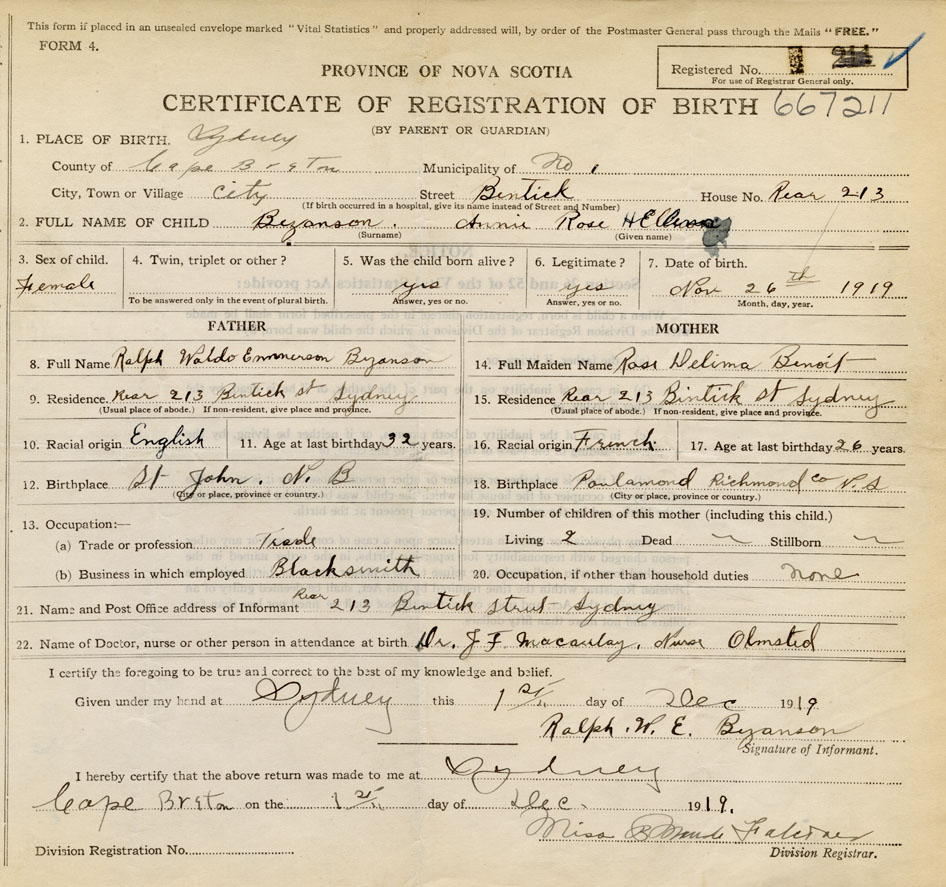 This form if placed in an unsealed envelope marked "Vital Statistics" and properly addressed will, by order of the Postmaster General pass through the Mails "FREE."
FORM 4.
Registered No.
For use of Registrar General only.
PROVINCE OF NOVA SCOTIA
CERTIFICATE OF REGISTRATION OF BIRTH 667211
(BY PARENT OR GUARDIAN)
1. PLACE OF BIRTH. Sydney
County of Cape Breton Municipality of No 1
City, Town or Village City Street Bintick House No. Rear 213
(If birth occurred in a hospital, give its name instead of Street and Number)
2. FULL NAME OF CHILD Bezanson. Annie Rose
(Surname) (Given name)
3. Sex of child. 4. Twin, triplet or other? 5. Was the child born alive? 6. Legitimate? 7. Date of birth.
Female yes yes Nov 26th 1919
To be answered only in the event of plural birth. Answer, yes or no. Answer, yes or no. Month, day, year.
FATHER MOTHER
8. Full Name Ralph Waldo Emmerson Bezanson 14. Full Maiden Name Rose Delima Benoit
9. Residence. Rear 213 Bintick st Sydney 15. Residence Rear 213 Bintick St Sydney
(Usual place of abode.) If non-resident, give place and province. (Usual place of abode.) If non-resident, give place and province.
10. Racial origin English 11. Age at last birthday 32 years. 16. Racial origin French 17. Age at last birthday 26 years.
12. Birthplace St John. N. B 18. Birthplace Poulamond Richmond co N.S
(City or place, province or country.) (City or place, province or country.)
13. Occupation:— 19. Number of children of this mother (including this child.)
(a) Trade or profession Trade Living 2 Dead — Stillborn —
(b) Business in which employed Blacksmith 20. Occupation, if other than household duties None
21. Name and Post Office address of Informant Rear 213 Bintick Street Sydney
22. Name of Doctor, nurse or other person in attendance at birth Dr. J F Macaulay, Nurse Olmsted
I certify the foregoing to be true and correct to the best of my knowledge and belief.
Given under my hand at Sydney this 1st day of Dec 1919
Ralph. W. E. Bezanson
Signature of Informant.
I hereby certify that the above return was made to me at Sydney
Cape Breton on the 1st day of Dec. 1919.
Miss Falconer
Division Registration No. Division Registrar.